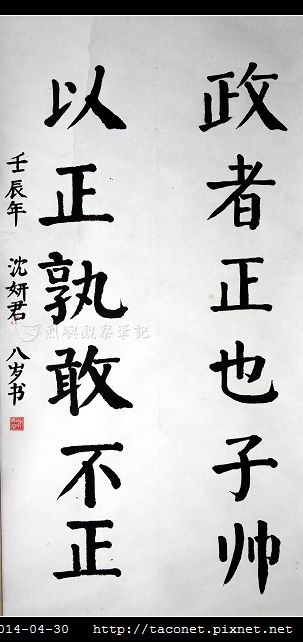 政者正也子帅
以正孰敢不正
壬辰年 沈妍君 八岁书
烈嶼觀察筆記
014-04-30 http://taconet.pixnet.net